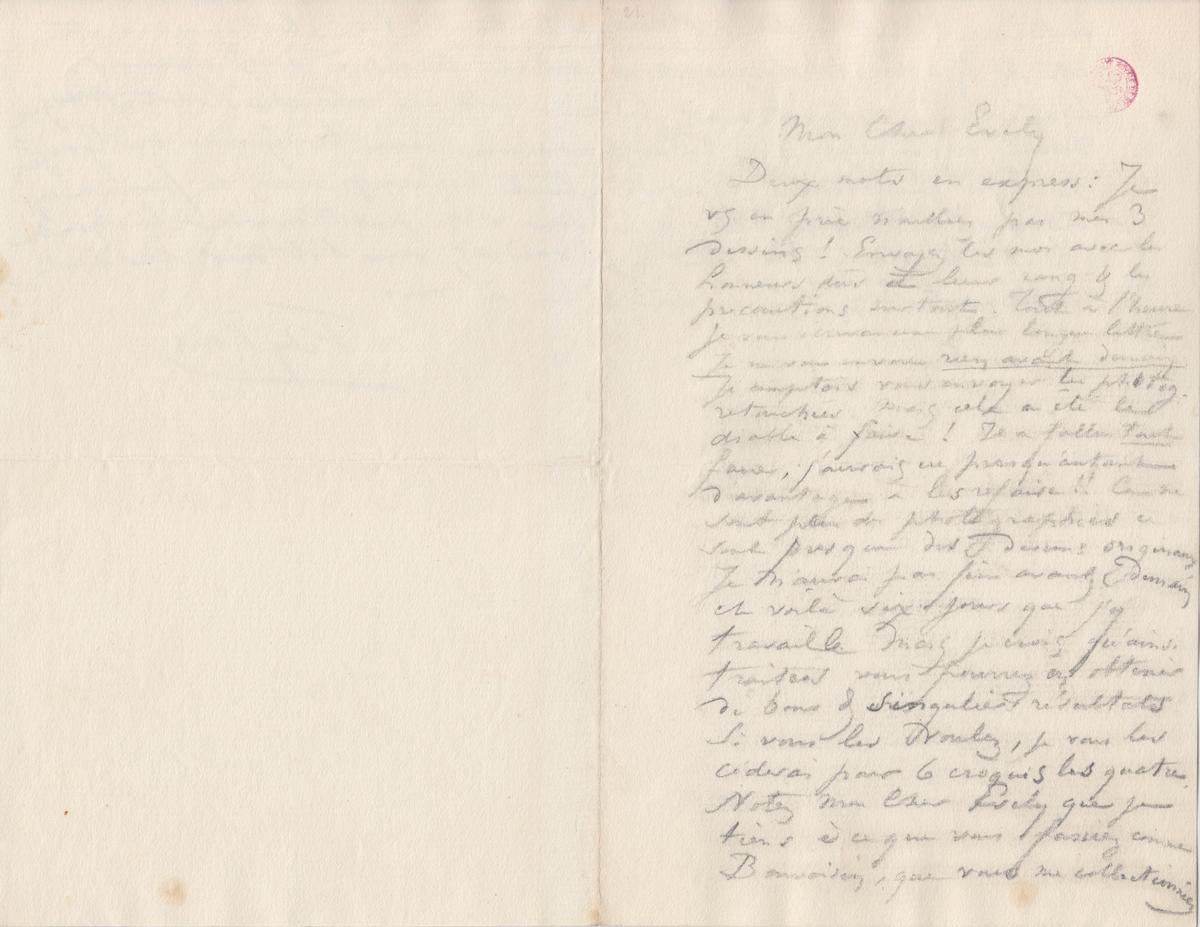 21.
Mon Cher Evely
Deux mots en express: Je
vs en prie n'oubliez pas mes 3
dessins ! Envoyez les moi avec les
honneurs dûs à leur rang & les
précautions surtout. Tout à l'heure
je vous une plus longue lettre
Je ne vous rien avant demain
Je comptais vous envoyer les photog.
retouchées mais cela a été le
diable à faire ! Il a fallu tout
, j'aurais eu presqu'autant
d'avantages à les refaire !! Ce ne
sont plus des photographies ce
sont presque des dessins originaux
Je n'aurai pas fini avant Demain
et voilà six jours que j'y
travaille Mais je crois qu'ainsi
traitées vous pourrez en obtenir
de bons & singuliers résultats
Si vous les voulez, je vous les
céderai pour 6 croquis les quatre.
Notez Mon Cher Evely que je
tiens à ce que vous fassiez comme
Bonvoisin, que vous me collectionniez